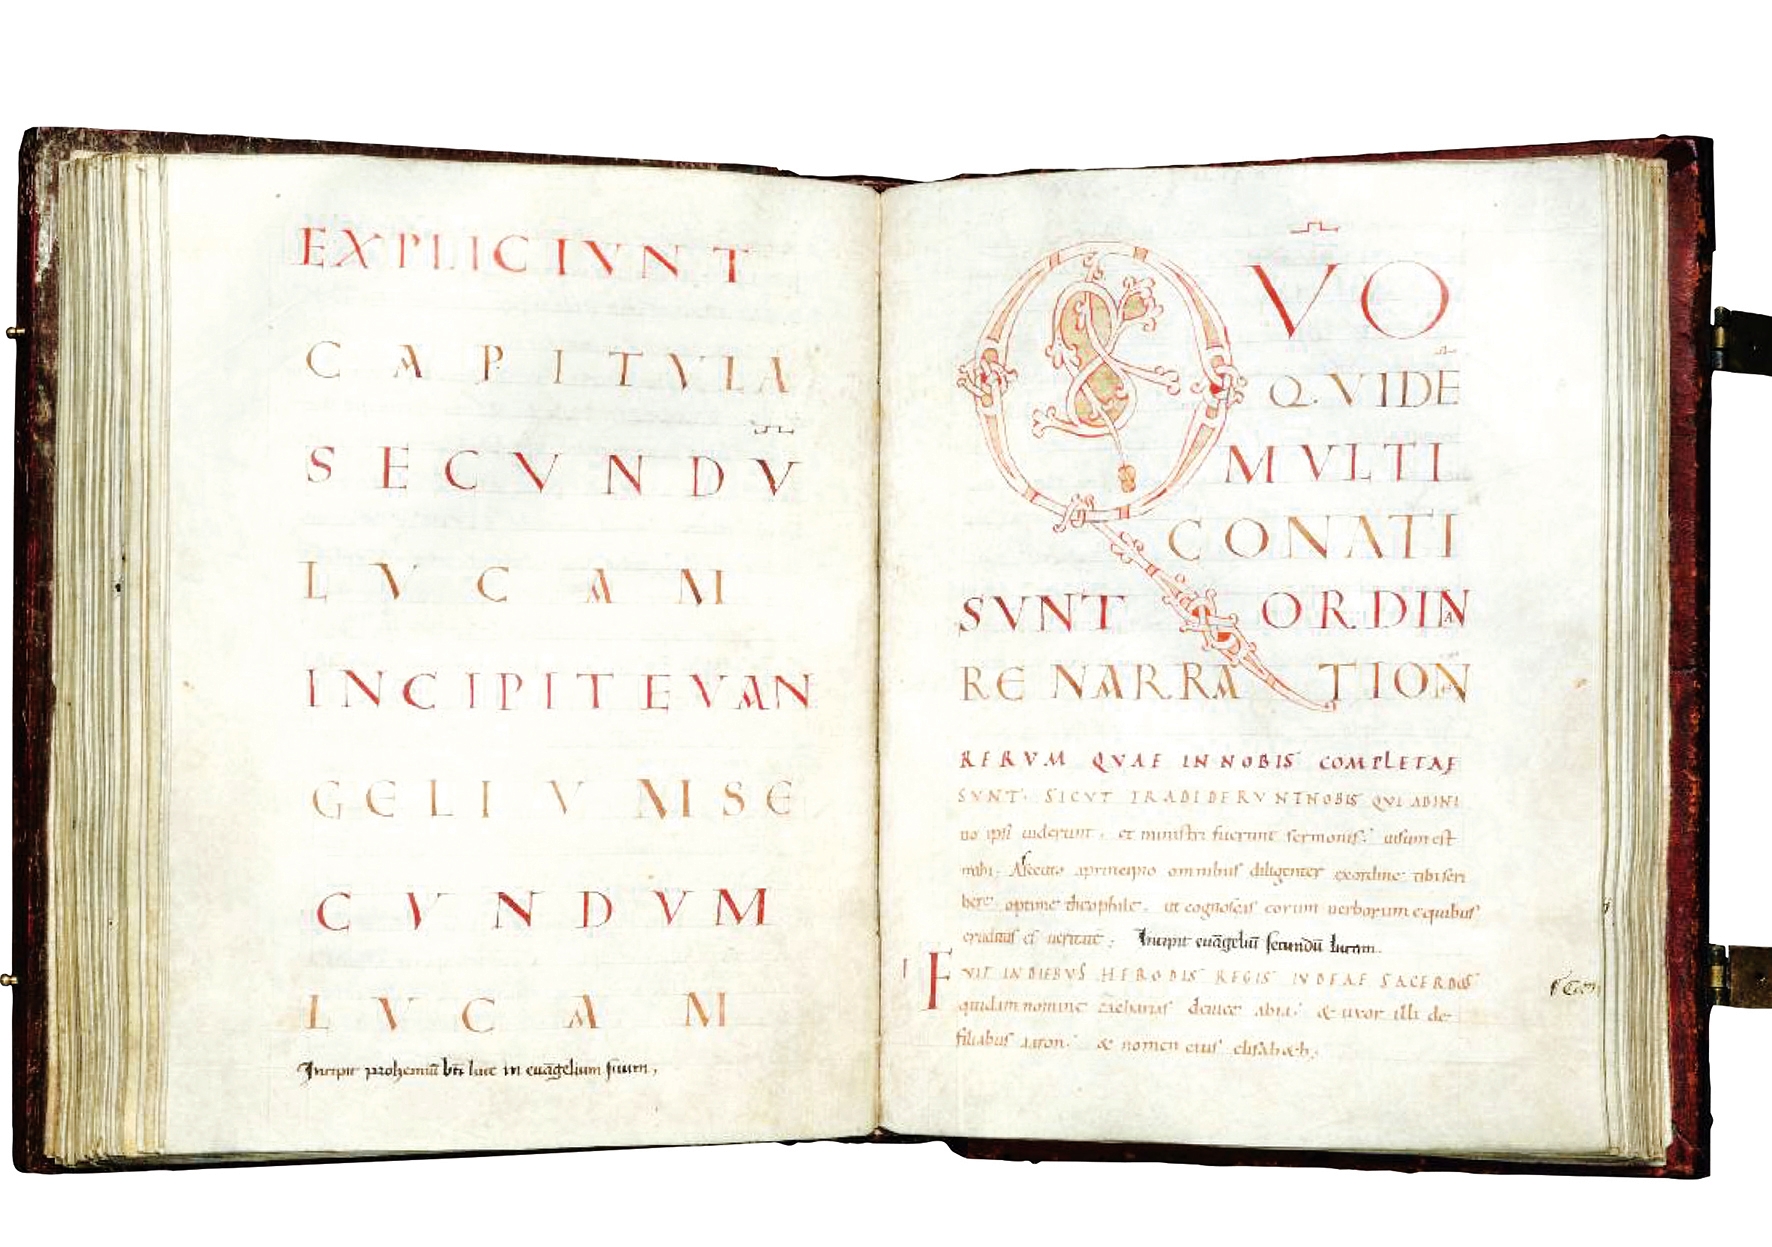 EXPLICIVNT
CAPITVLA
SECVNDV̅
LVCAM
INCIPIT EVAN
GELIVM SE
CVNDVM
LVCAM
Incipit prohemiū bt̄i luce in euāgelium suum,
QVO̅
QVIDE̅
MVLTI
CONATI
SVNT ORDINA
RE NARRATIONE̅
RERVM QVAE IN NOBIS COMPLETAE
SVNT. SICVT TRADIDERVNT NOBIS QVI AB INI
tio ipsi uiderunt, et ministri fuerunt sermonis; uisum est
mihi. Assecuto a principio omnibus diligenter ex ordine tibi scri
bere optime theophile. ut cognoscas eorum uerborum e quibus
eruditus es ueritatē; Incipit euāgeliū secundū lucam.
FVIT IN DIEBVS HERODIS REGIS IVDEAE SACERDOS
quidam nomine Zacharias de uice abia. & uxor illi de
filiabus aaron. & nomen eius elisabeth.